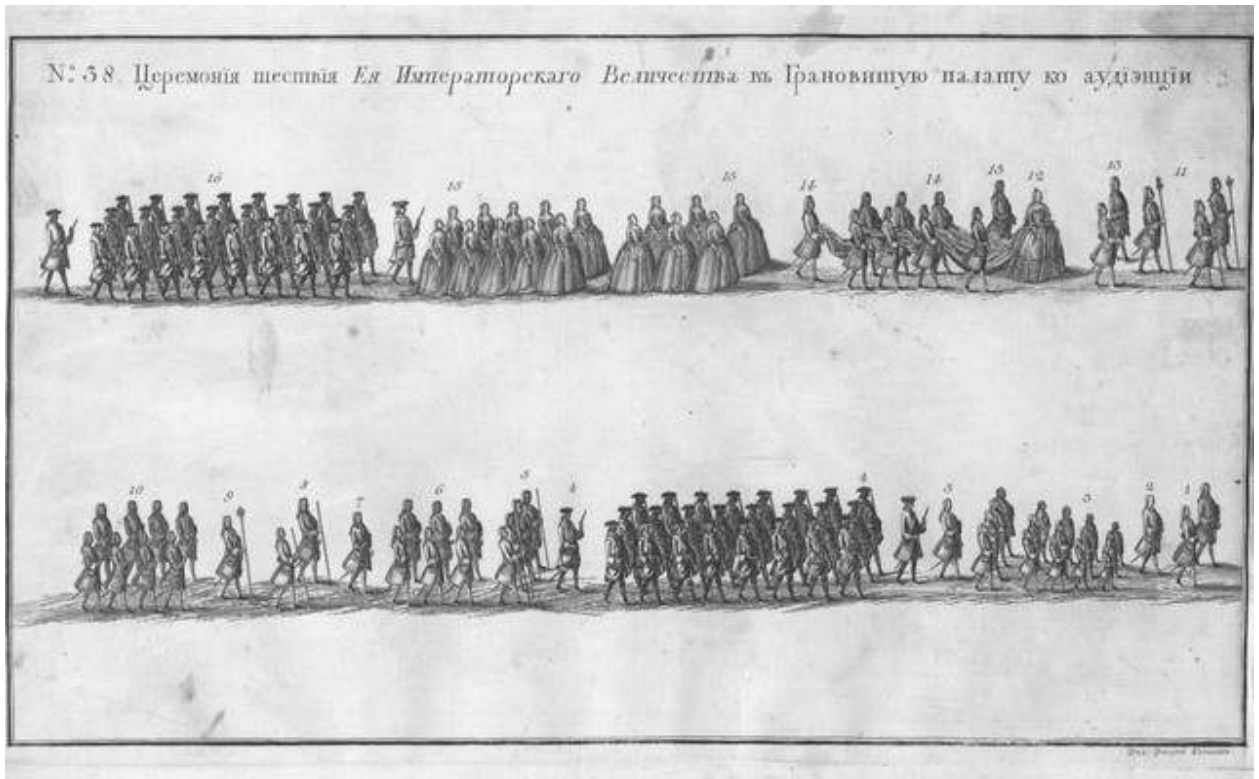 № 38. Церемонїя шествїя Ея Императорскаго Величества въ Грановитую палату ко аудїэнцїи
16 15 15 14 14 13 12 13 11
10 9 8 7 6 5 4 4 3 3 2 1